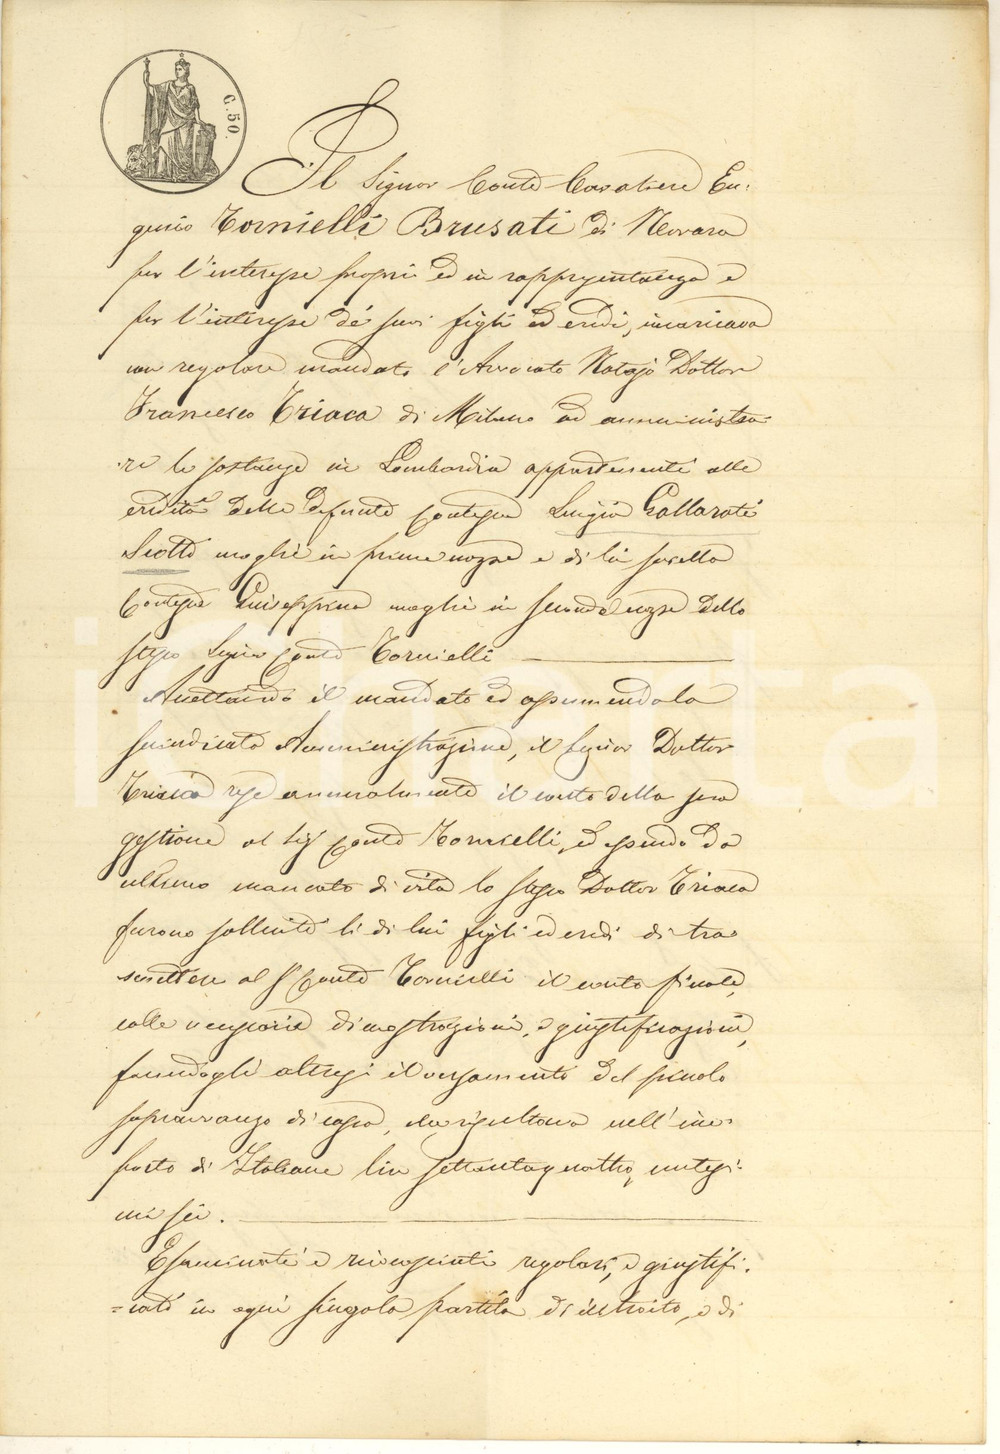 C. 50.
Il Signor Conte Cavaliere Eu-
genio Tornielli Brusati di Novara
per l'interesse proprio ed in rappresentanza e
per l'interesse de' suoi figli ed eredi, incaricava
con regolare mandato l'Avvocato Notajo Dottor
Francesco Triaca di Milano ad amministra-
re le sostanze in Lombardia appartenenti alle
eredità delle defunte Contessa Luigia Gallarati
Scotti moglie in prime nozze e di lei sorella
Contessa Giuseppina moglie in seconde nozze dello
stesso Signor Conte Tornielli
Accettando il mandato ed assumendo la
suindicata Amministrazione, il Signor Dottor
Triaca rese annualmente il conto della sua
gestione al Sig.r Conte Tornielli, ed essendo da
ultimo mancato di vita lo stesso Dottor Triaca
furono solleciti li di lui figli ed eredi di tra-
smettere al S.r Conte Tornielli il conto finale,
colle necessarie dimostrazioni, e giustificazioni,
facendogli altresì il versamento del piccolo
sopravvanzo di cassa, che risultava nell'im-
porto di Italiane lire settantaquattro, centesi-
mi sei.
Esaminati e riconosciuti regolari, e giustifi-
=cati in ogni singola partita di introito, e di